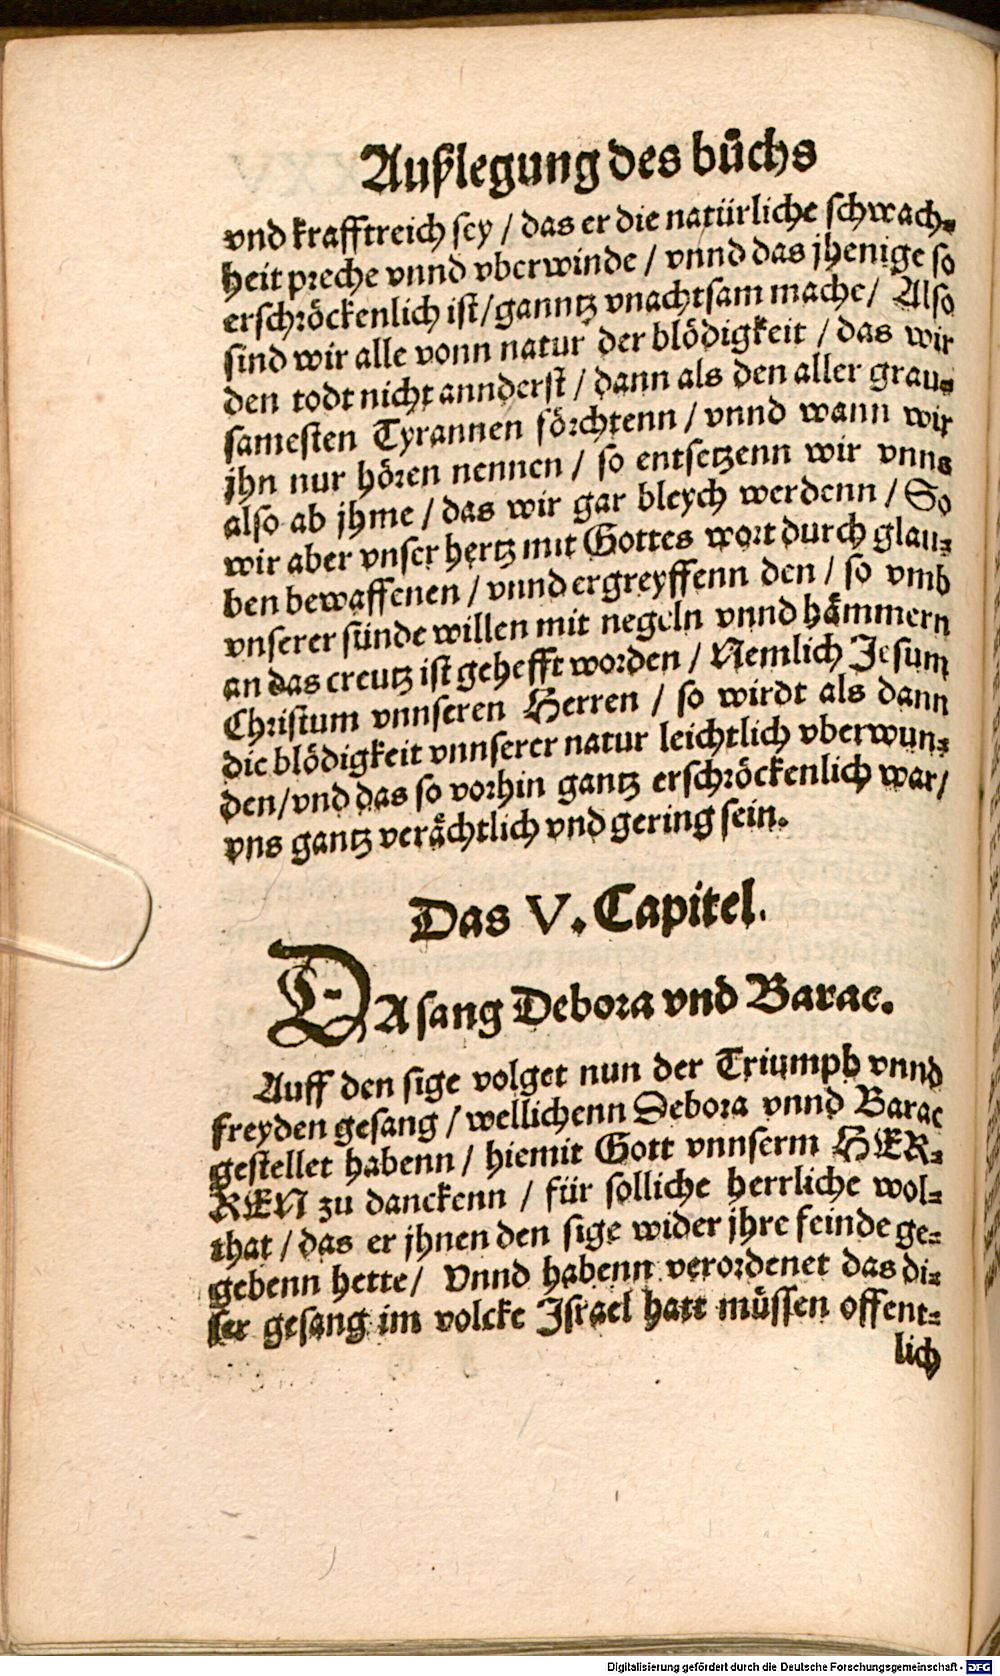 Außlegung des bůchs
vnd krafftreich sey / das er die natürliche schwach-
heit preche vnnd vberwinde / vnnd das jhenige so
erschröckenlich ist/ganntz vnachtsam mache/ Also
sind wir alle vonn natur der blödigkeit / das wir
den todt nicht annderst / dann als den aller grau-
samesten Tyrannen förchtenn / vnnd wann wir
jhn nur hören nennen / so entsetzenn wir vnns
also ab jhme / das wir gar bleych werdenn / So
wir aber vnser hertz mit Gottes wort durch glau-
ben bewaffenen / vnnd ergreyffenn den / so vmb
vnserer sünde willen mit negeln vnnd hämmern
an das creutz ist gehefft worden / Nemlich Jesum
Christum vnnseren Herren / so wirdt als dann
die blödigkeit vnnserer natur leichtlich vberwun-
den/vnd das so vorhin gantz erschröckenlich war/
vns gantz verächtlich vnd gering sein.
Das V. Capitel.
DA sang Debora vnd Barac.
Auff den sige volget nun der Triumph vnnd
freyden gesang / wellichenn Debora vnnd Barac
gestellet habenn / hiemit Gott vnnserm HER-
REN zu danckenn / für solliche herrliche wol-
that / das er jhnen den sige wider jhre feinde ge-
gebenn hette/ Vnnd habenn verordenet das di-
ser gesang im volcke Israel hatt müssen offent-
lich
Digitalisierung gefördert durch die Deutsche Forschungsgemeinschaft - DFG